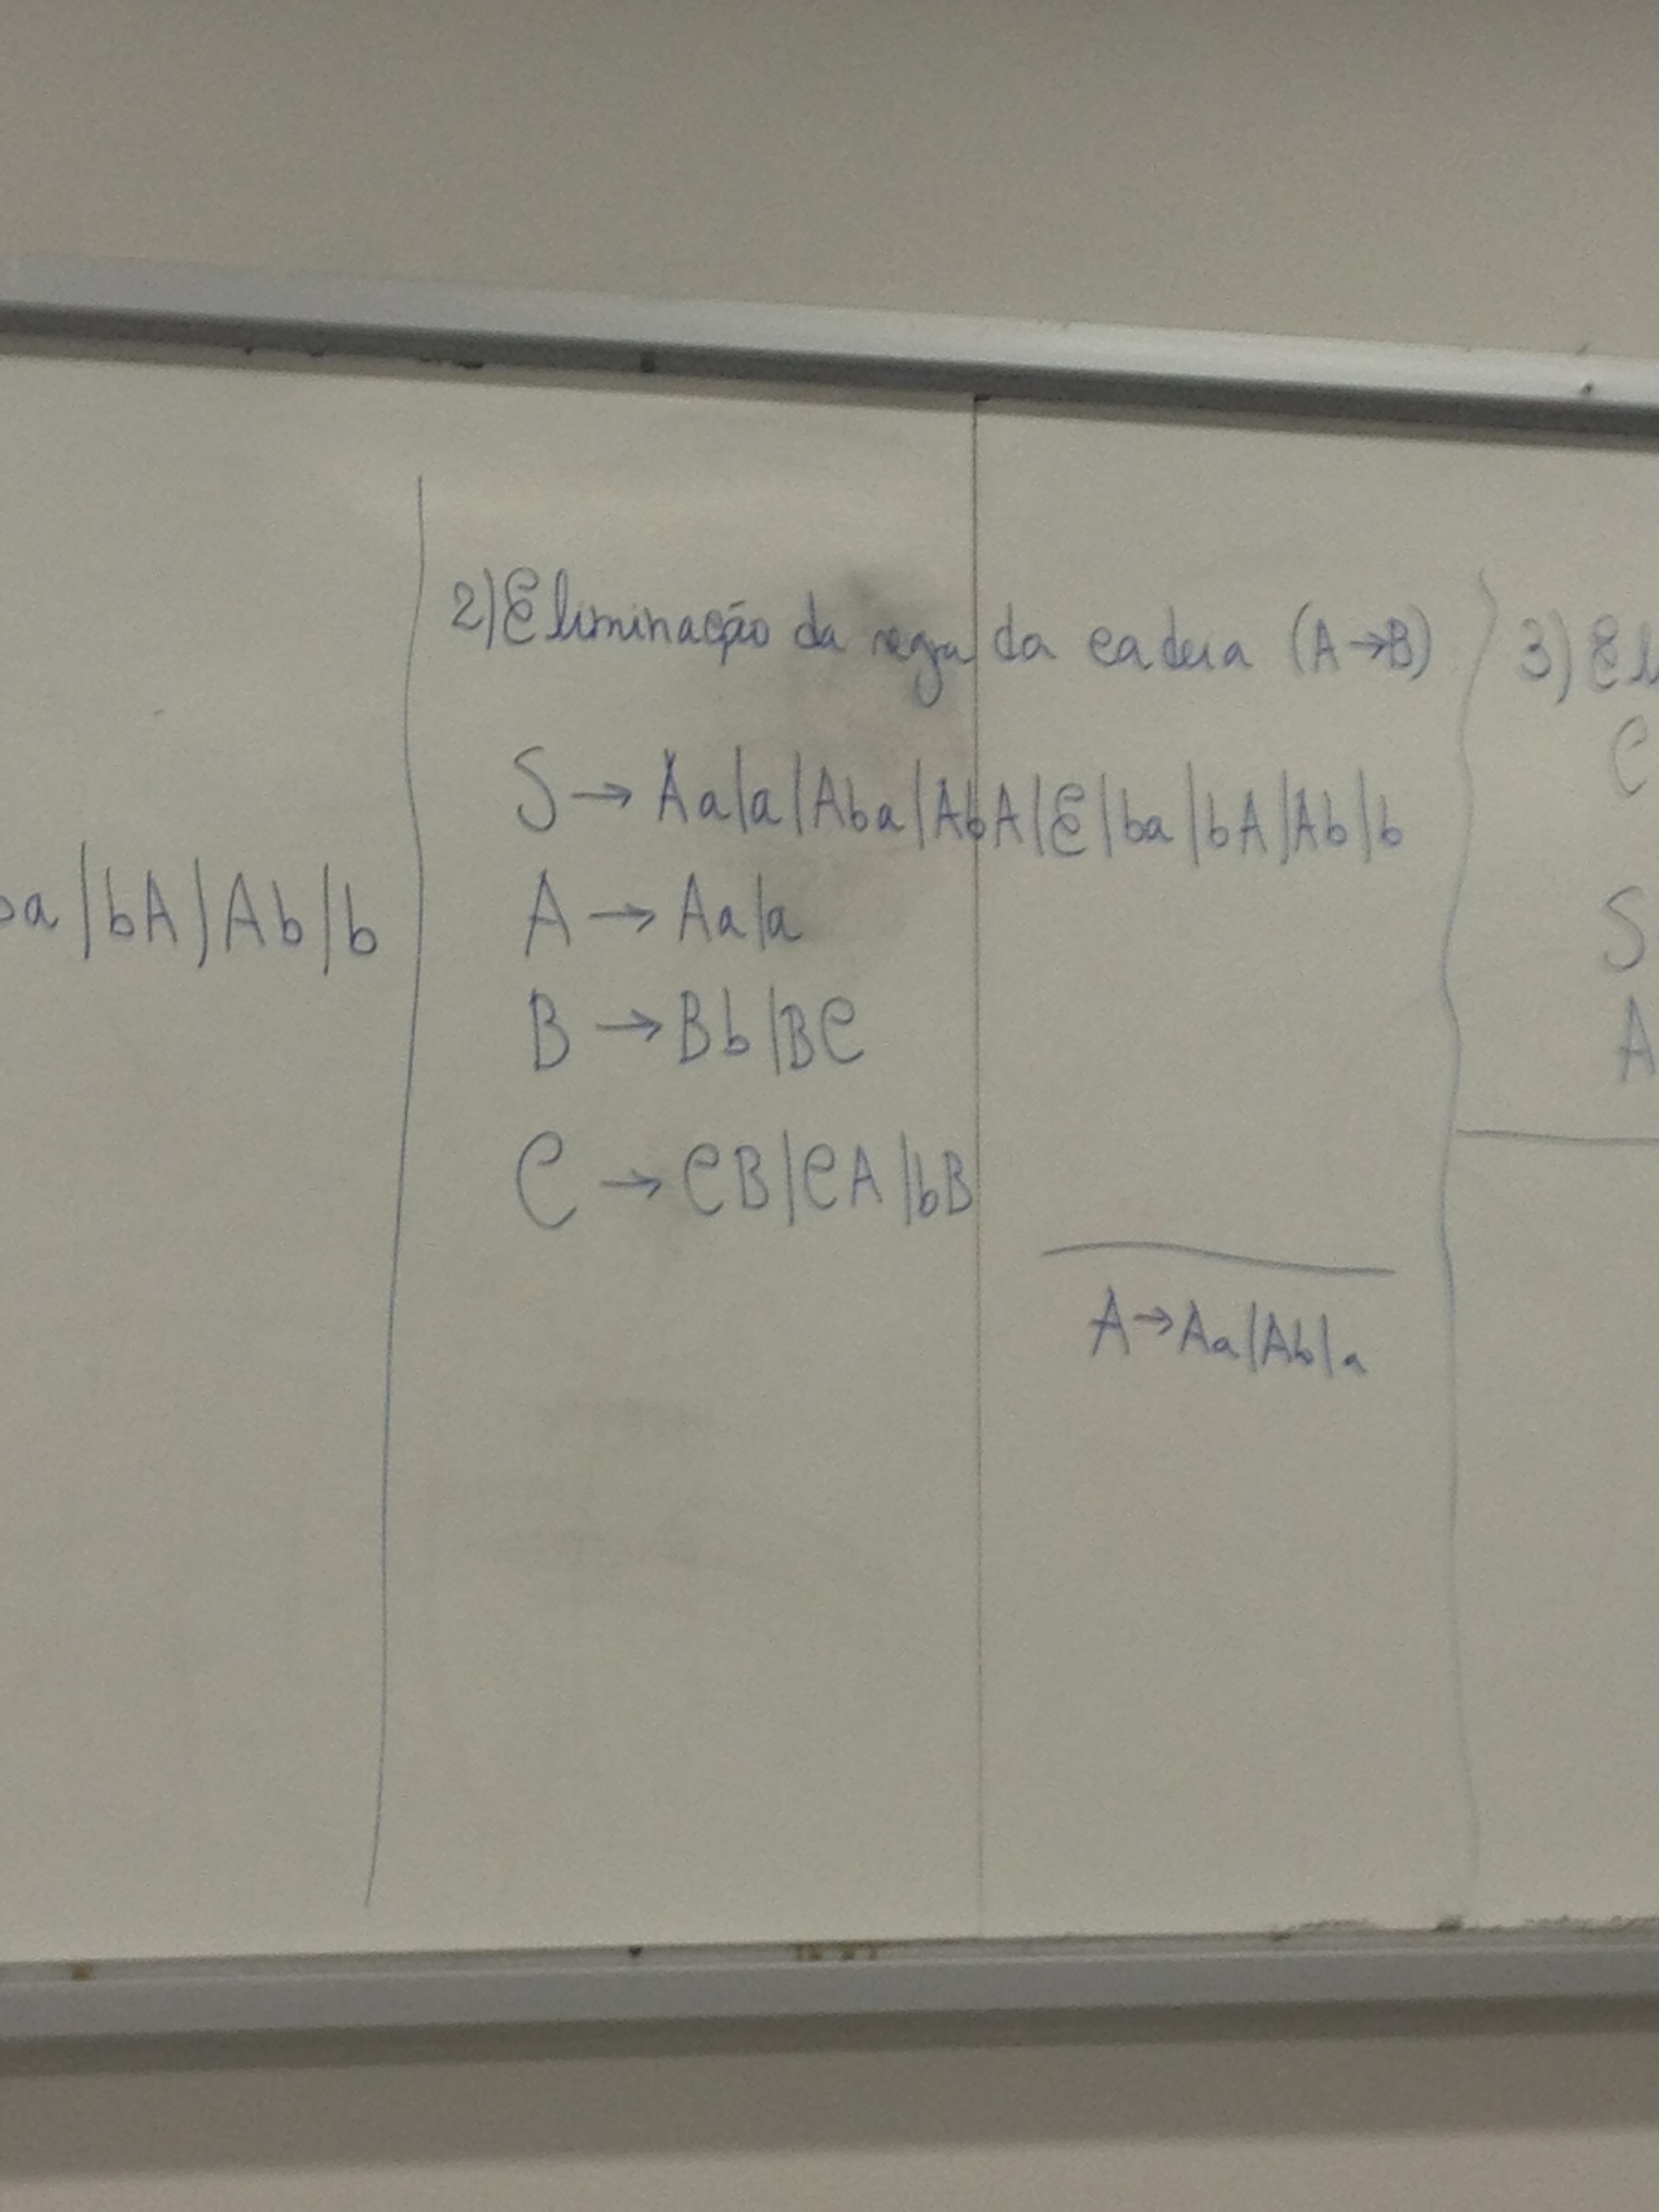 ba|bA|Ab|b
2) Eliminação da regra da cadeia (A→B)
S → Aa|a|Aba|AbA|Ɛ|ba|bA|Ab|b
A → Aa|a
B → Bb|BC
C → CB|CA|bB
A→Aa|Ab|a
3) El
C
S
A